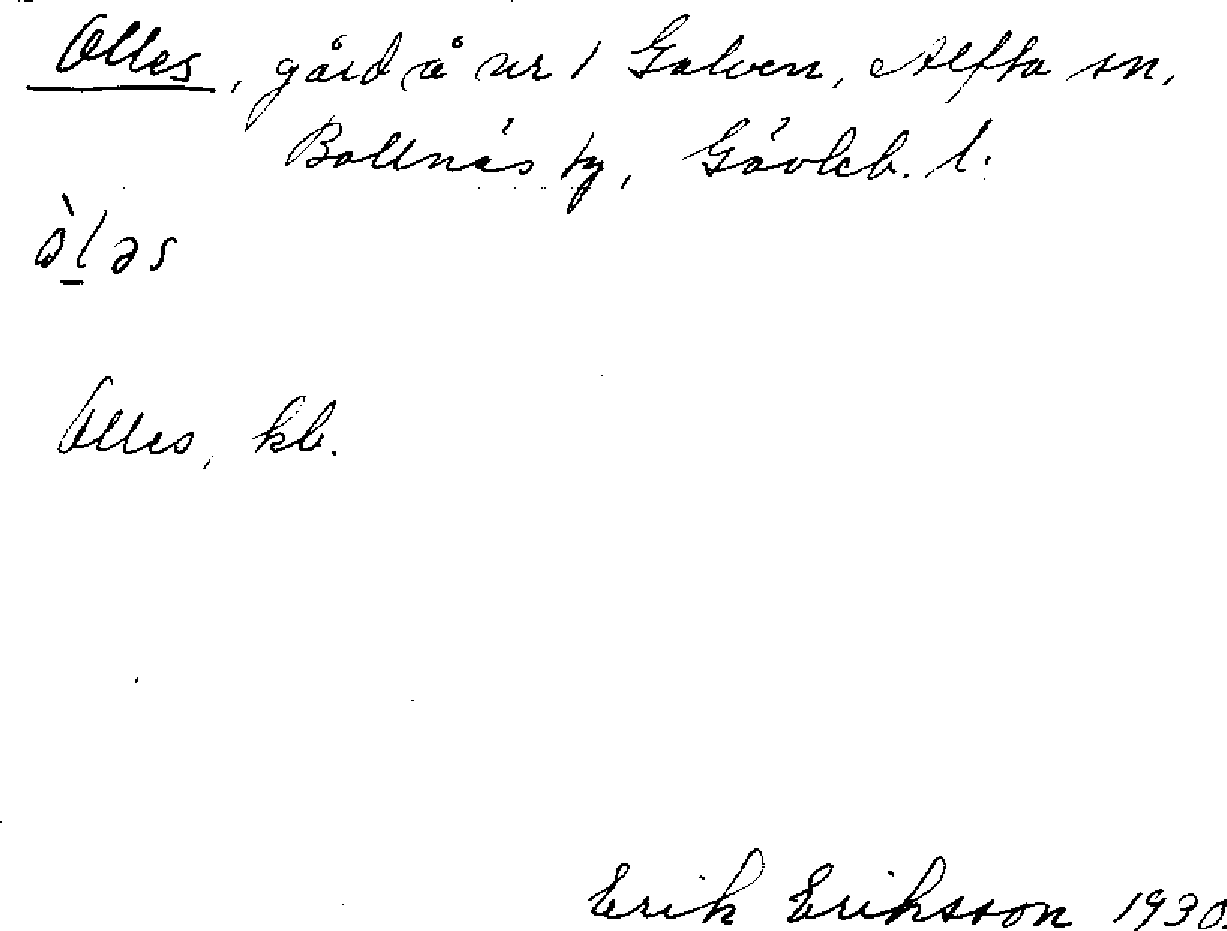 Olles, gård å nr 1 Galven, Alfta sn,
Bollnäs tg, Gävleb. l.
òl̲əs
Olles, kb.
Erik Eriksson 1930.